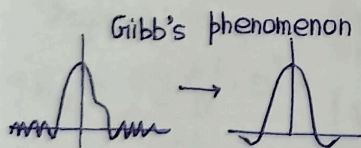 Gibb's phenomenon